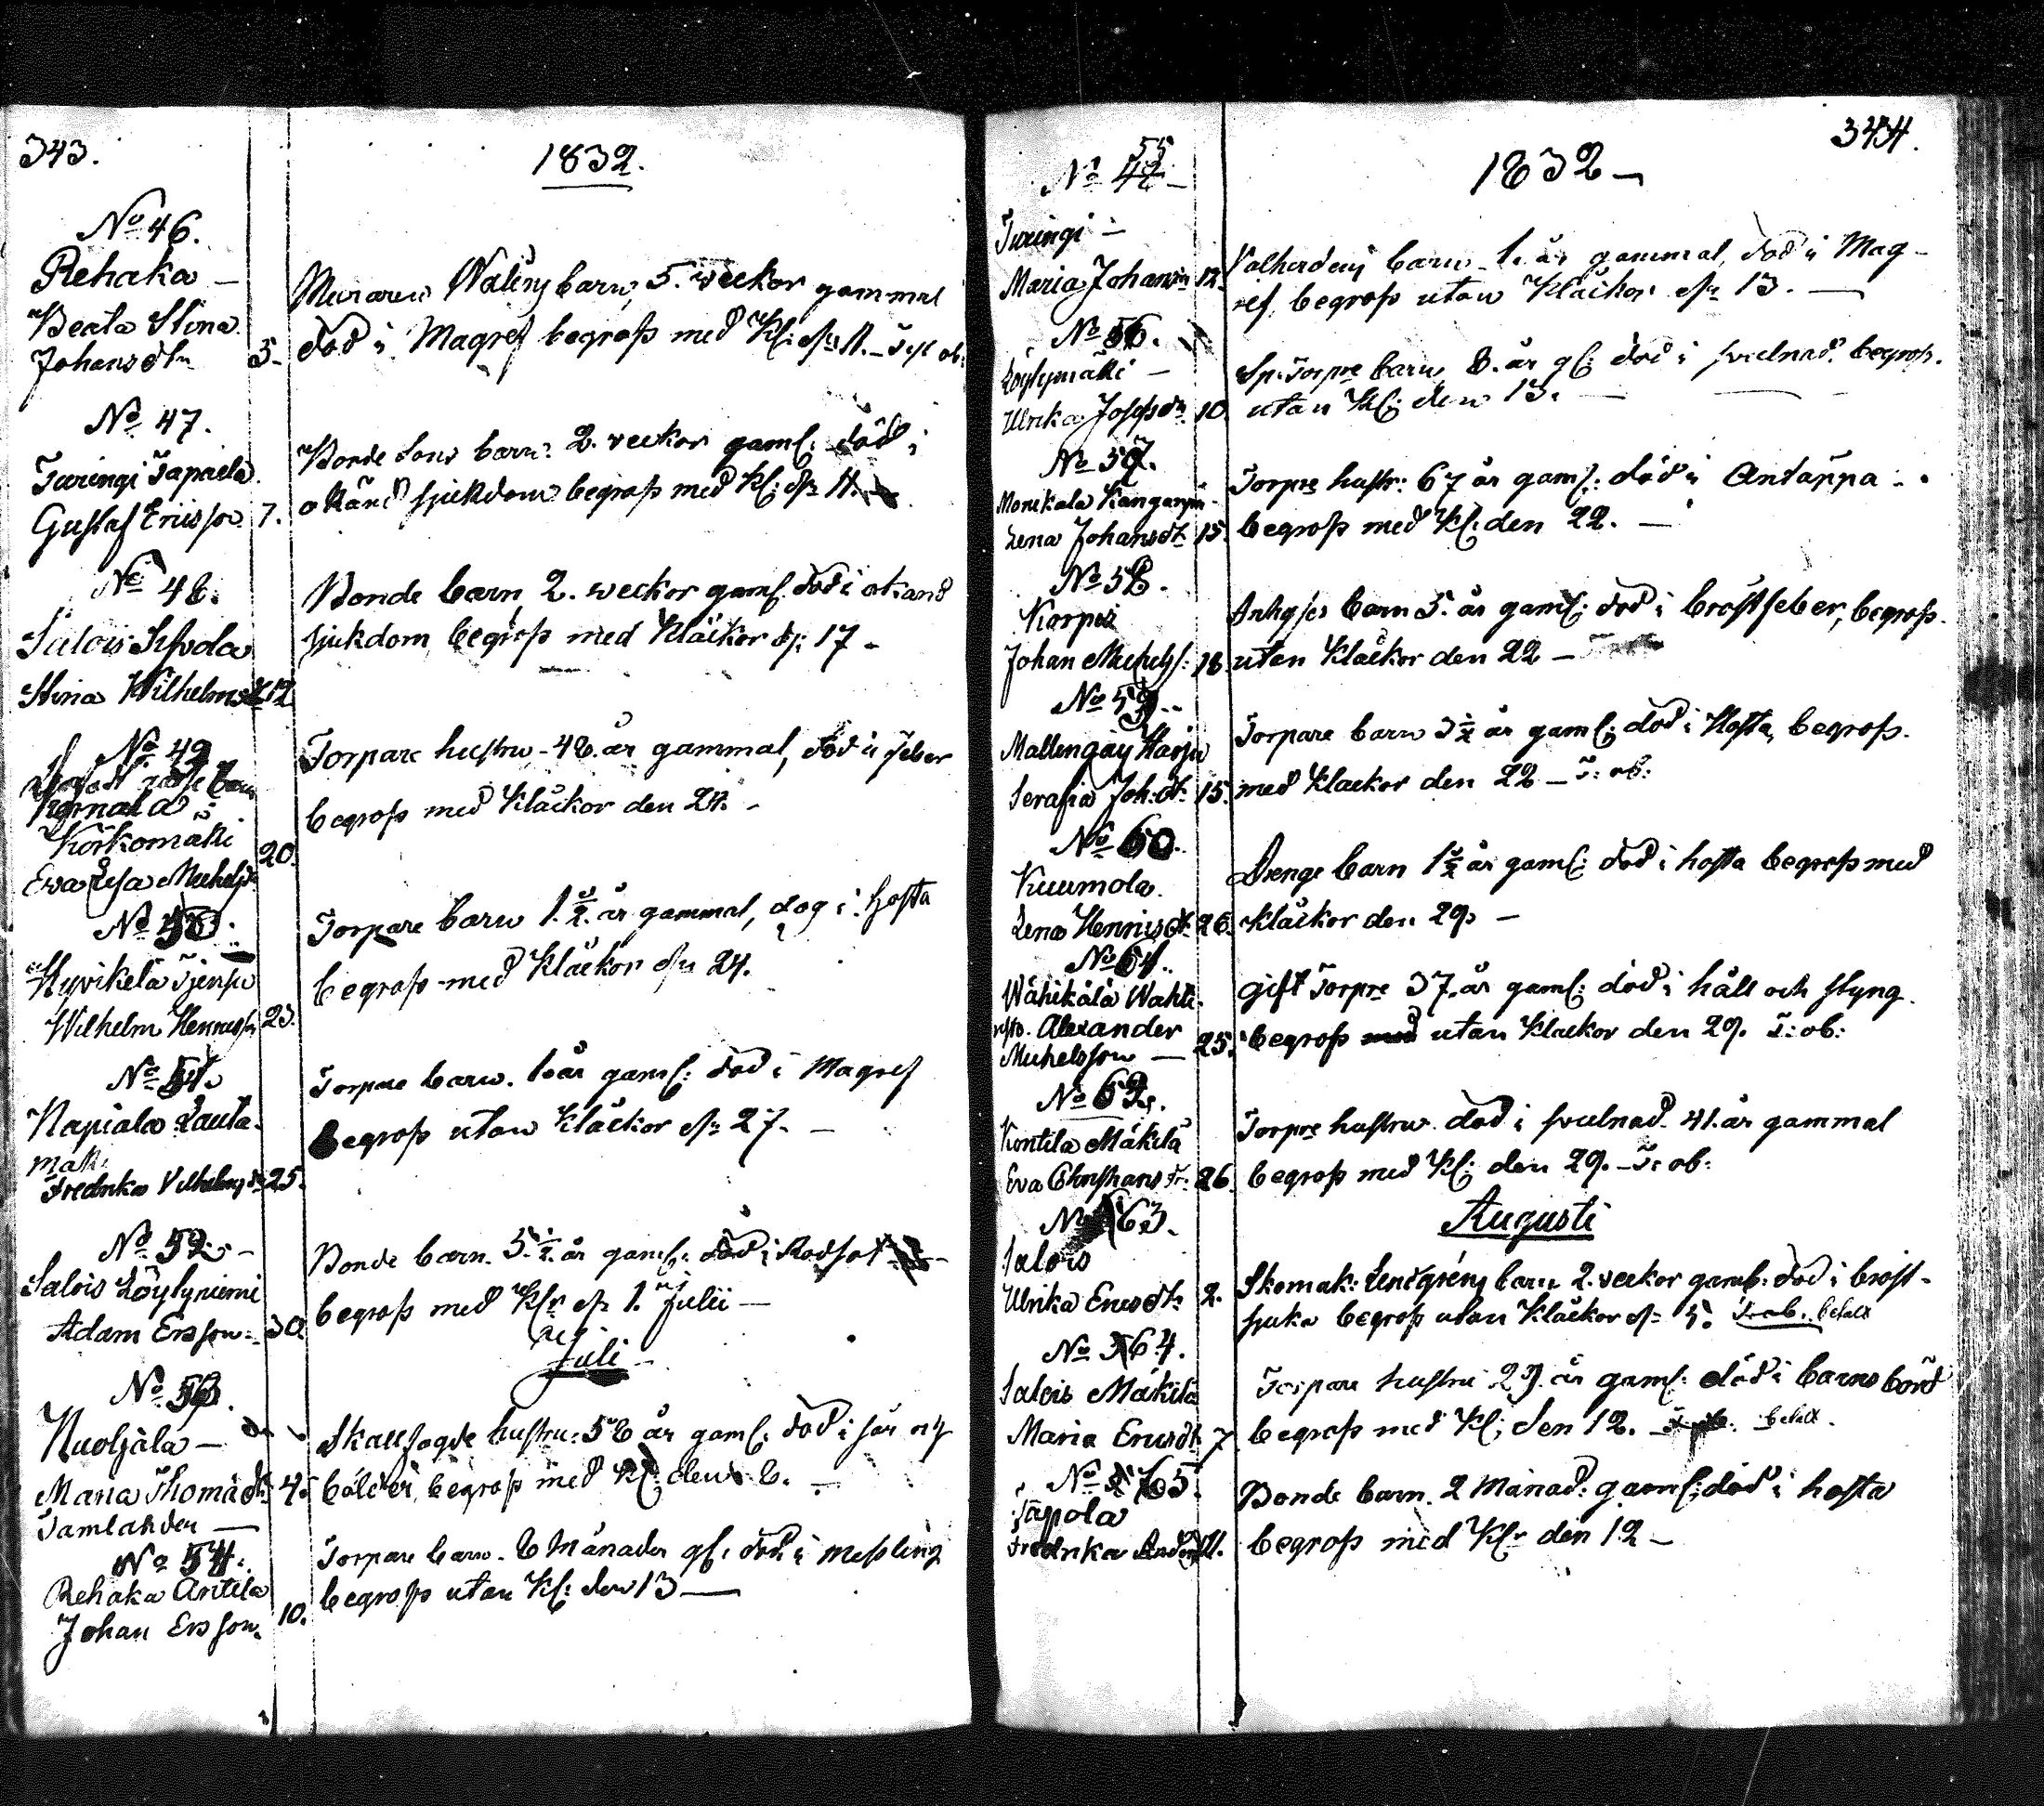 343.
1832.
No 46.
Rehaka —
Beata Stina
Johansdtr 5.
Muraren Waléns barn, 5. veckor gammal
död i Magref begrofs med Kl: d: 11. —
No 47.
Turingi Tapaela
Gustaf Ericsson 7.
Bonde Sons barn 2. veckor gaml: död i
okänd sjukdom begrofs med Kl: d: 11.
No 48.
Salois
Stina Wilhelmsd 12
Bonde barn 2. veckor gaml: död i okänd
sjukdom, begrofs med Kläckor d: 17 —
No 49
Körkomäki 20.
Eva Lisa Michelsdr
Torpare hustru — 48. år gammal, död i feber
begrofs med Kläckor den 24. —
No 50.
Hyvikelä
Wilhelm Henricss 23.
Torpare barn 1. ½ år gammal, dog i hosta
begrofs med Kläckor d: 24.
No 51.
Napiala Lauta-
mäki
Fredrika Vilhelms dr 25.
Torpare barn. 1. år gaml: död i Magref
begrofs utan Kläckor d: 27. —
No 52. —
Salois Löylyniemi
Adam Ersson 30.
Bonde barn. 5. ½ år gaml: död i Rodsot
begrofs med Kl: d: 1. Julii —
Juli
No 53.
Nuoljala —
Maria Thomädr 4.
Skallfogde hustru: 58 år gaml: död i sår och
bölder, begrofs med Kl: den 8. —
Tamlahden —
No 54.
Rehaka Antila
Johan Ersson. 10.
Torpare barn. 8 Månader gl: död i mefsling
begrofs utan Kl: den 13 —
344.
1832 —
55
No 47 —
Turingi —
Maria Johansdr 12.
barn 1. år gammal, död i Mag-
ref, begrofs utan Kläckor d: 13. —
No 56.
Löylymäki —
Ulrika Josefsdr 10.
Sp: Torpre barn 8. år gl: död i svulnad begrofs.
utan Kl: den 13. —
No 57.
Monikala Kangarpä
Lena Johansdr 15.
Torpre hustr: 67 år gaml: död i Antäppa
begrofs med Kl: den 22. —
No 58.
Karpis
Johan Michelss: 18
Inhyses barn 5. år gaml: död i bröstfeber, begrofs.
utan Kläckor den 22 —
No 59.
Mallengay Harju
Serafia Joh: dr: 15.
Torpare barn 3 ½ år gaml: död i Hosta, begrofs.
med Klackor den 22 — T: ob:
No 60.
Kuumola.
Lena Henricsdr 26.
Drenge barn 1 ½ år gaml: död i hosta begrofs med
Kläckor den 29. —
No 61.
Wähikälä Wahte-
risto. Alexander
Michelsson — 25.
Gift Torpre 37. år gaml: död i håll och styng
begrofs med utan Klackor den 29. T: ob:
No 62.
Kontila Mäkilä
Eva Christians dr: 26.
Torpre hustru död i svulnad 41. år gammal
begrofs med Kl: den 29. — T: ob:
Augusti
No 63.
Salois
Ulrika Ericsdr 2.
Skomak: barn 2. veckor gaml: död i bröst-
sjuka begrofs utan Kläckor d: 5.
No 64.
Salois Mäkilä
Maria Ericsdr 7
Torpare hustru 29. år gaml: död i barnsbörd
begrofs med Kl: den 12.
No 65.
Täpola
Fredrika 11.
Bonde barn. 2 Månad: gaml: död i hosta
begrofs med Kl: den 12 —